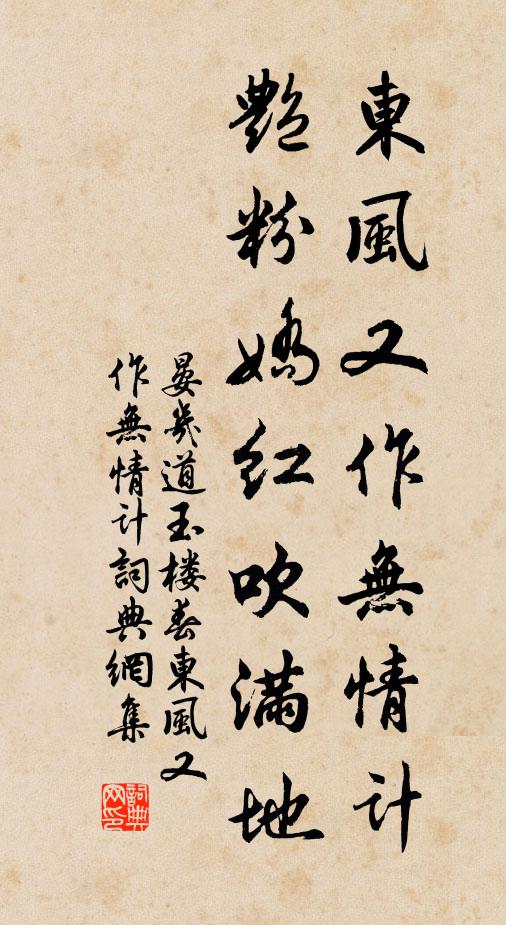 東風又作無情計
艷粉嬌紅吹滿地
晏幾道玉楼春東風又
作無情計詞典網集
詞典
网印